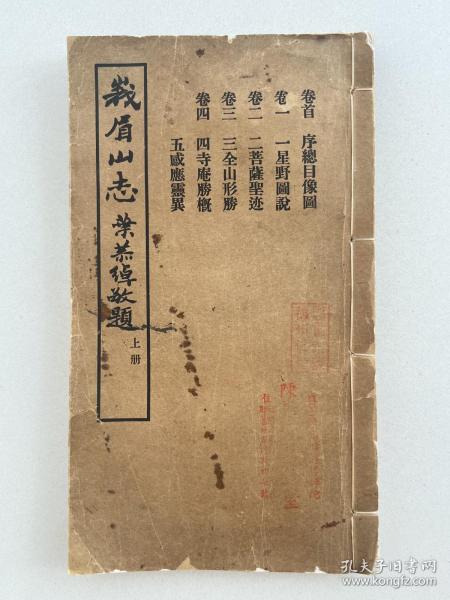 卷首 序總目像圖
卷一 一星野圖說
卷二 二菩薩聖迹
卷三 三全山形勝
卷四 四寺庵勝概
五感應靈異
峩眉山志
葉恭綽敬題
上册
陳
孔夫子旧书网
kongfz.com